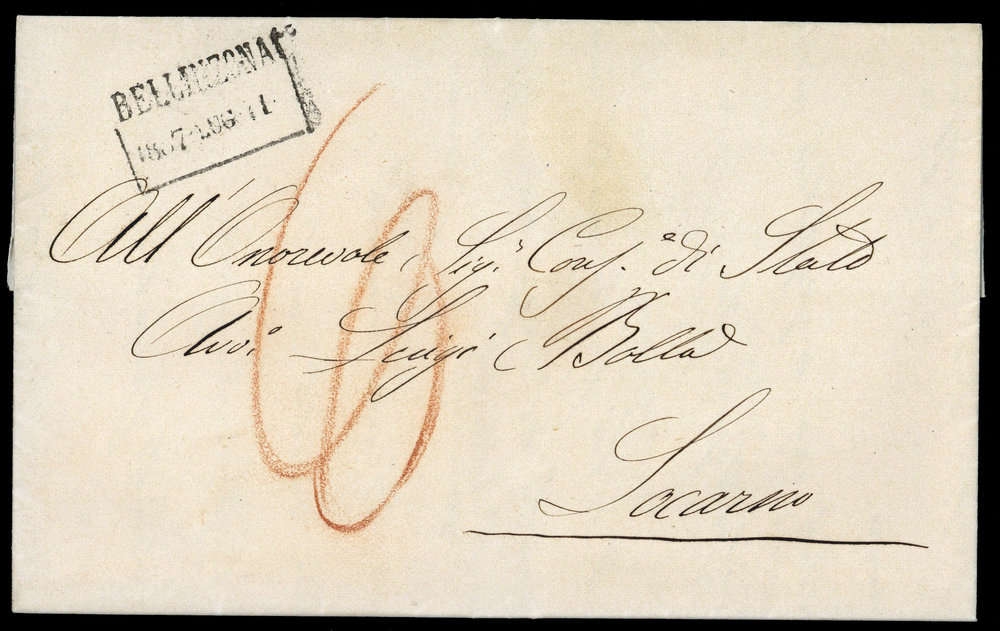 BELLINZONA
All'Onorevole Sigr. Consre di Stato
Avo. Luigi Bolla
Locarno
6